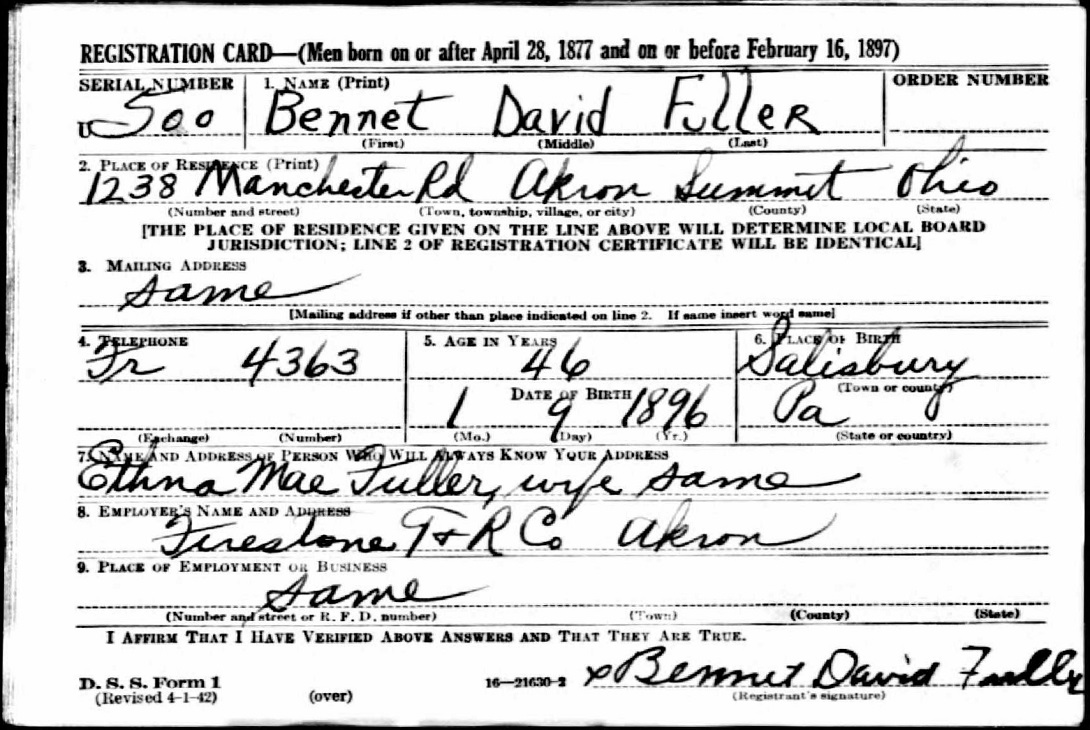 REGISTRATION CARD—(Men born on or after April 28, 1877 and on or before February 16, 1897)
SERIAL NUMBER 1. NAME (Print) ORDER NUMBER
U 500 Bennet David Fuller
(First) (Middle) (Last)
2. PLACE OF RESIDENCE (Print)
1238 Manchester Rd Akron Summit Ohio
(Number and street) (Town, township, village, or city) (County) (State)
[THE PLACE OF RESIDENCE GIVEN ON THE LINE ABOVE WILL DETERMINE LOCAL BOARD
JURISDICTION; LINE 2 OF REGISTRATION CERTIFICATE WILL BE IDENTICAL]
3. MAILING ADDRESS
same
[Mailing address if other than place indicated on line 2. If same insert word same]
4. TELEPHONE 5. AGE IN YEARS 6. PLACE OF BIRTH
Fr 4363 46 Salisbury
DATE OF BIRTH (Town or county)
1 9 1896 Pa
(Exchange) (Number) (Mo.) (Day) (Yr.) (State or country)
7. NAME AND ADDRESS OF PERSON WHO WILL ALWAYS KNOW YOUR ADDRESS
Ethna Mae Fuller, wife same
8. EMPLOYER'S NAME AND ADDRESS
Firestone T & R Co Akron
9. PLACE OF EMPLOYMENT OR BUSINESS
same
(Number and street or R. F. D. number) (Town) (County) (State)
I AFFIRM THAT I HAVE VERIFIED ABOVE ANSWERS AND THAT THEY ARE TRUE.
D. S. S. Form 1 16—21630-2 x Bennet David Fuller
(Revised 4-1-42) (over) (Registrant's signature)